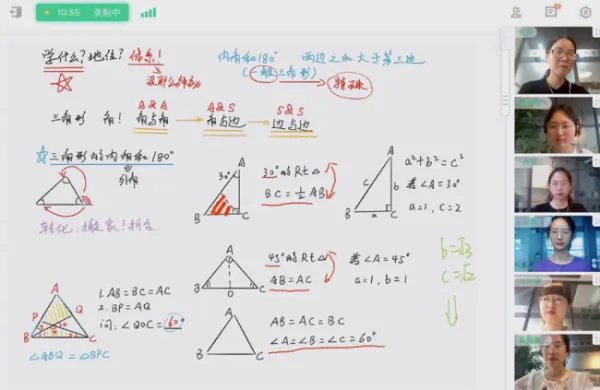 10:55 录制中
学什么?地位? 体系!
内角和180° 两边之和大于第三边
(一般三角形) 特殊
三角形 角!
A&A A&S S&S
角与角 角与边 边与边
三角形的内角和180°
转化:搬家!拆合
30°
A
B
C
30°的Rt△
BC=½AB
A
c
b
B
a
C
a²+b²=c²
若∠A=30°
a=1, c=2
b=√3
c=√2
A
B
D
C
45°的Rt△
AB=AC
若∠A=45°
a=1, b=1
A
P
Q
B
C
1. AB=BC=AC
2. BP=AQ
问:∠QOC=60°
∠ABQ=∠BPC
A
B
C
AB=AC=BC
∠A=∠B=∠C=60°